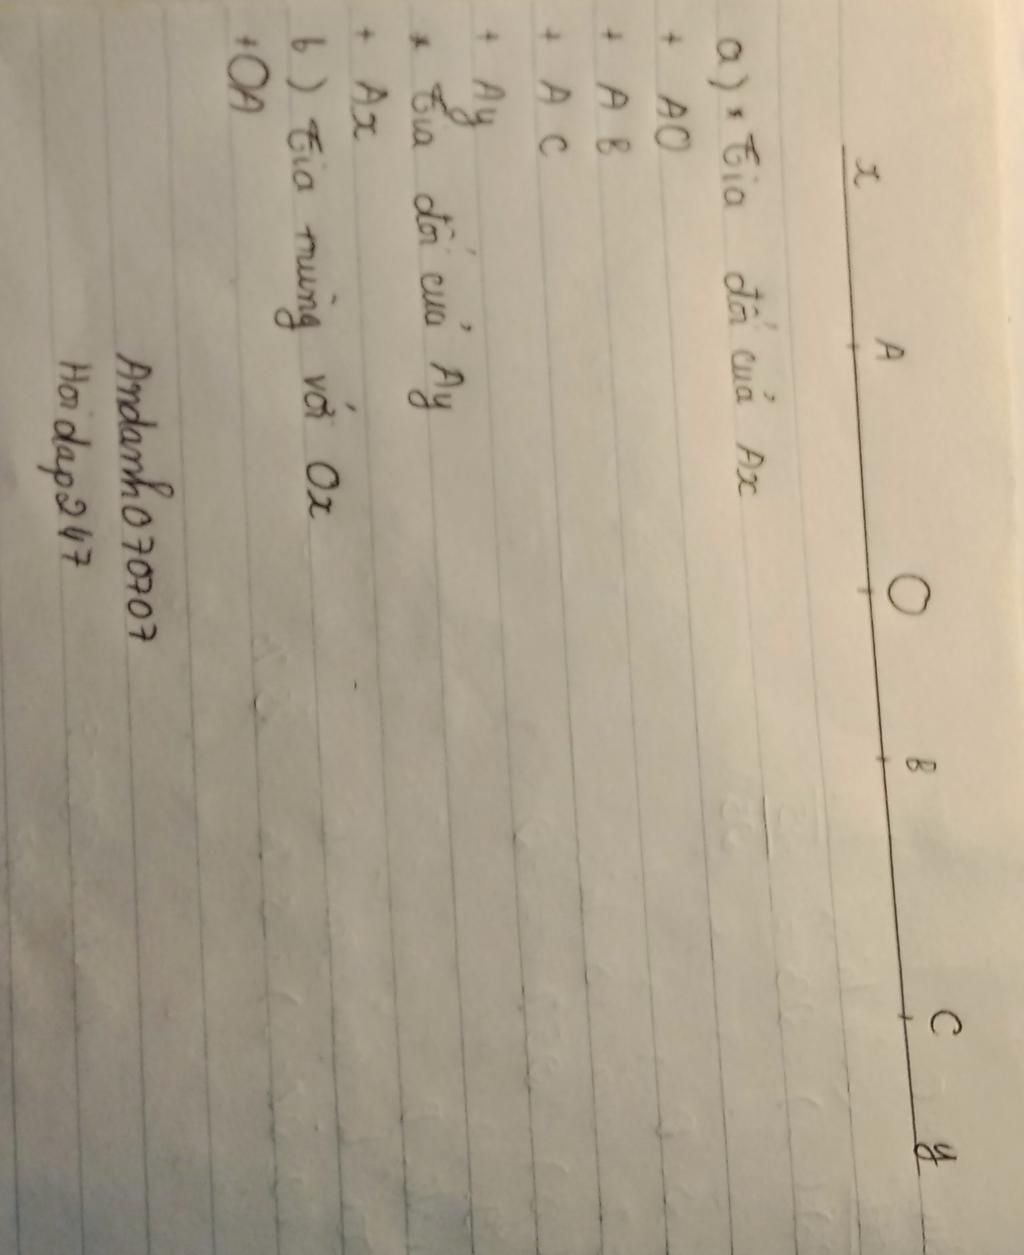 x A O B C y
a) * Tia đối của Ax
+ AO
+ AB
+ AC
+ Ay
* Tia đối của Ay
+ Ax
b) Tia trùng với Ox
+ OA
Andanh070707
Hoidap247